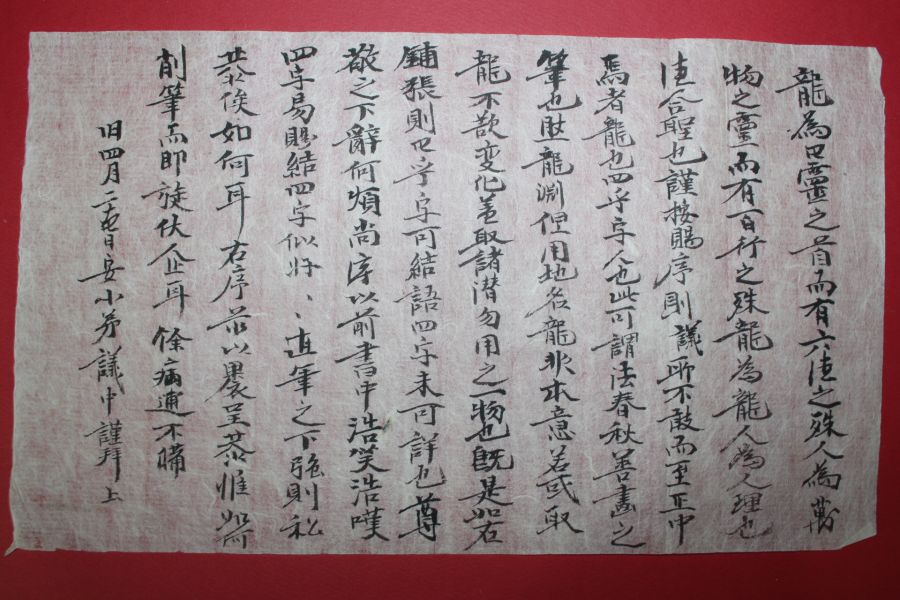 龍為四靈之首而有六德之殊人為萬
物之靈而有百行之殊龍為龍人為人理也
德合聖也謹接賜序則議所不敢而至正中
馬者龍也四乎字人也此可謂法春秋善畵之
筆也龍淵俚用地名龍非本意若或取
龍不欲变化盖取諸潜勿用之一物也旣是如右
鋪張則四乎字可結語四字未可詳也尊
敬之下辭何煩尚序以前書中浩笑浩嘆
四字易賜結四字似好〻直筆之下強則私
恭俟如何耳右序若以褁呈恭惟如何
削筆而即旋伏企耳餘病逋不備
旧四月二七日安小弟議中謹拜上